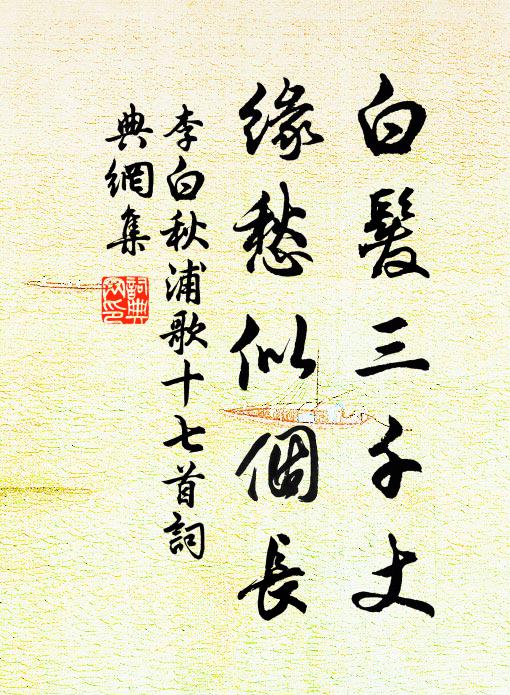 白髮三千丈
緣愁似個長
李白秋浦歌十七首詞
典網集
詞典網印